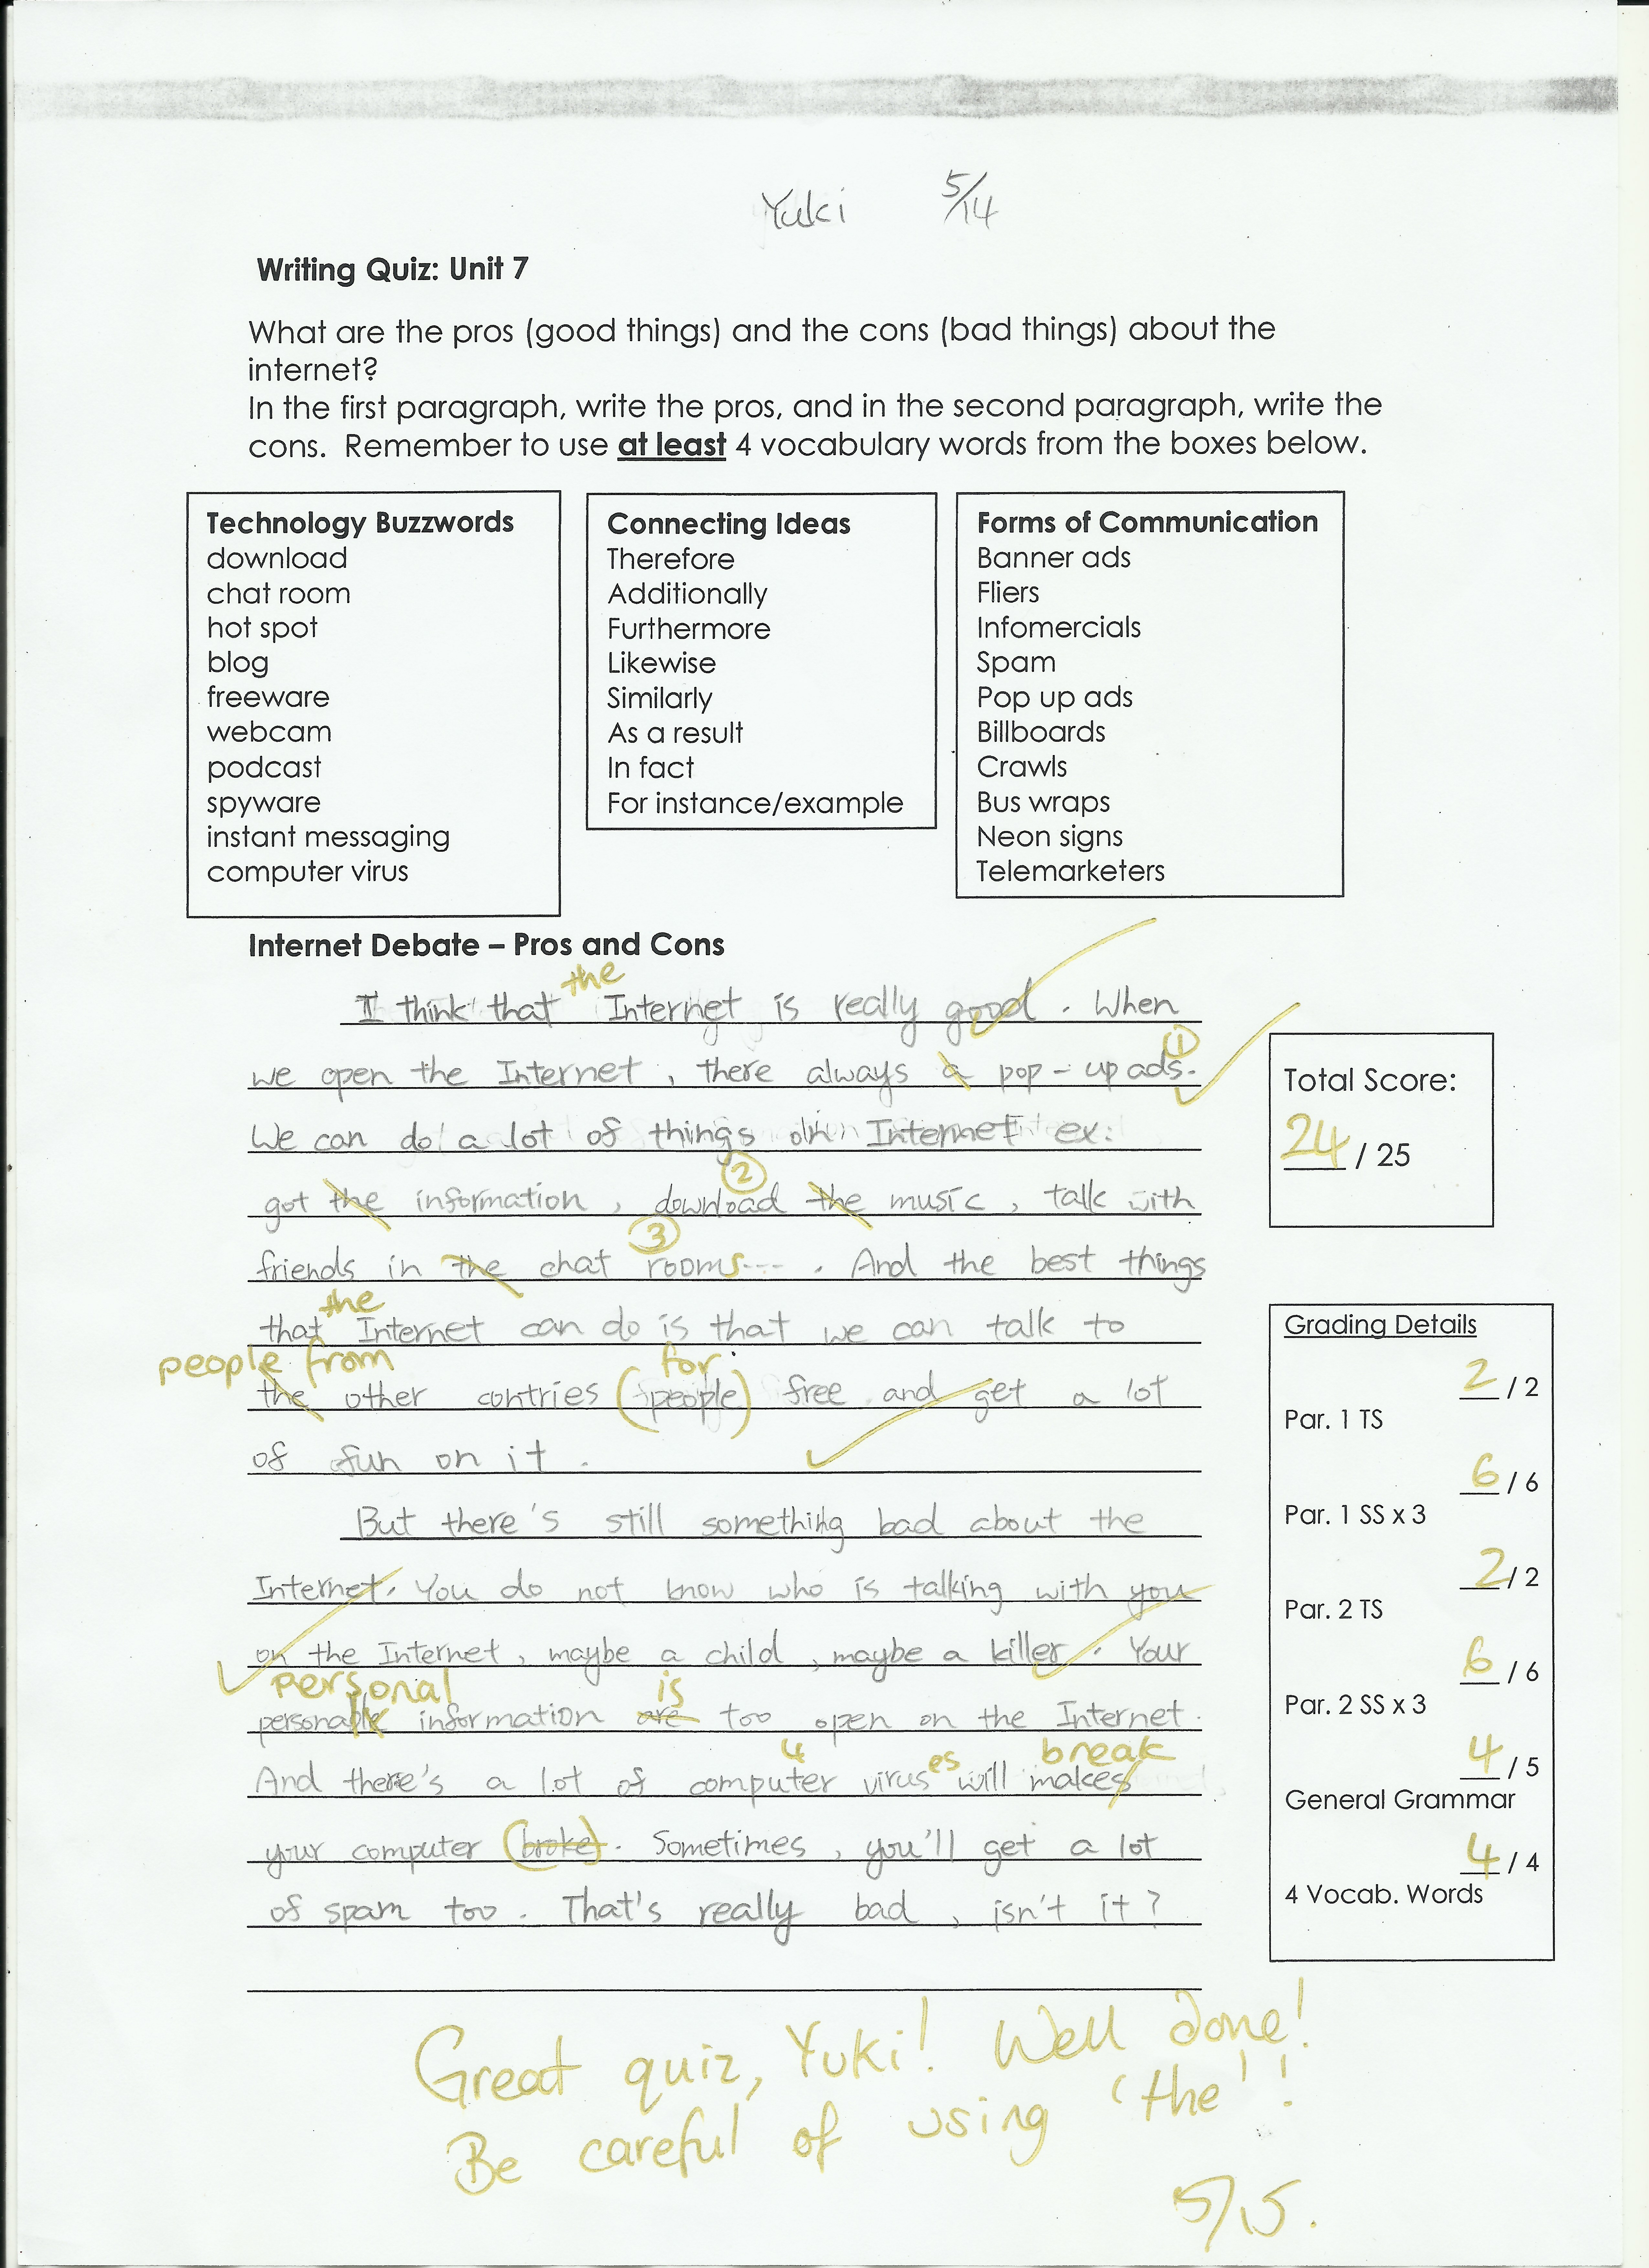 Yuki 5/14
Writing Quiz: Unit 7
What are the pros (good things) and the cons (bad things) about the
internet?
In the first paragraph, write the pros, and in the second paragraph, write the
cons. Remember to use at least 4 vocabulary words from the boxes below.
Technology Buzzwords
download
chat room
hot spot
blog
freeware
webcam
podcast
spyware
instant messaging
computer virus
Connecting Ideas
Therefore
Additionally
Furthermore
Likewise
Similarly
As a result
In fact
For instance/example
Forms of Communication
Banner ads
Fliers
Infomercials
Spam
Pop up ads
Billboards
Crawls
Bus wraps
Neon signs
Telemarketers
Internet Debate – Pros and Cons
the
I think that Internet is really good. When
①
we open the Internet, there always a pop-up ads.
We can do a lot of things on Internet ex:
②
got the information, download the music, talk with
③
friends in the chat rooms.... And the best things
the
that Internet can do is that we can talk to
people from for
the other contries (people) free and get a lot
of fun on it.
But there's still something bad about the
Internet. You do not know who is talking with you
on the Internet, maybe a child, maybe a killer. Your
personal is
personable information are too open on the Internet.
4 es break
And there's a lot of computer virus will makes
your computer (broke). Sometimes, you'll get a lot
of spam too. That's really bad, isn't it?
Total Score:
24 / 25
Grading Details
2 / 2
Par. 1 TS
6 / 6
Par. 1 SS x 3
2 / 2
Par. 2 TS
6 / 6
Par. 2 SS x 3
4 / 5
General Grammar
4 / 4
4 Vocab. Words
Great quiz, Yuki! Well done!
Be careful of using 'the'!
5/15.